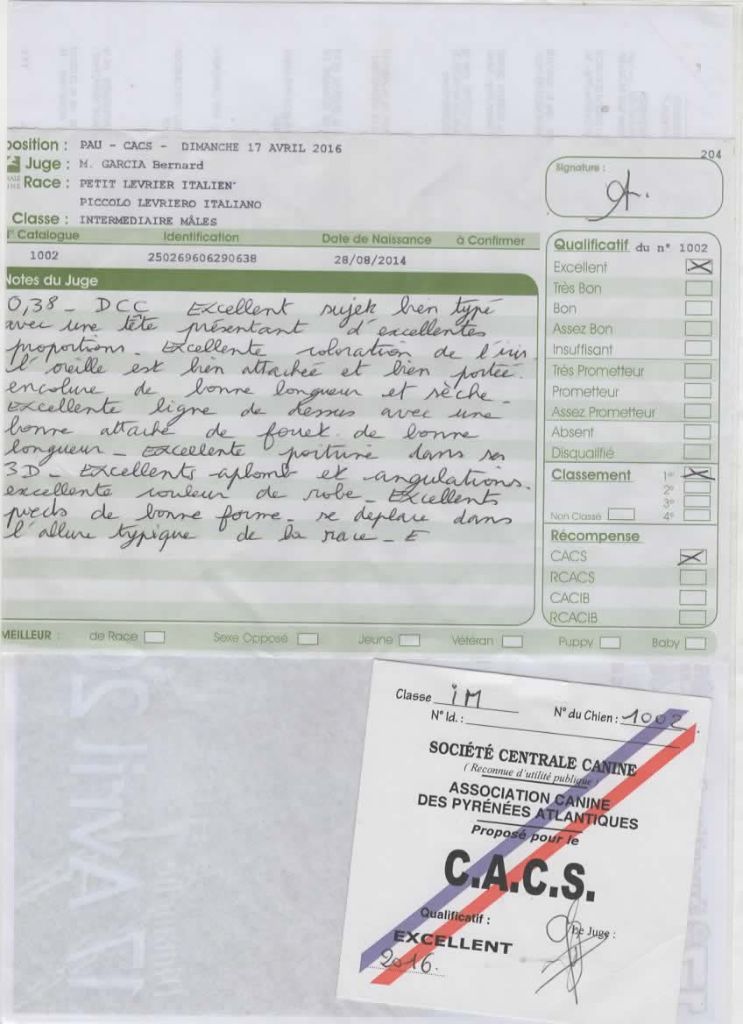 204
position : PAU - CACS - DIMANCHE 17 AVRIL 2016
Juge : M. GARCIA Bernard
Race : PETIT LEVRIER ITALIEN
PICCOLO LEVRIERO ITALIANO
Classe : INTERMEDIAIRE MÂLES
Signature :
N° Catalogue Identification Date de Naissance à Confirmer
1002 250269606290638 28/08/2014
Notes du Juge
0,38 - DCC Excellent sujet bien typé
avec une tête présentant d'excellentes
proportions. Excellente coloration de l'iris.
l'oreille est bien attachée et bien portée.
encolure de bonne longueur et sèche.
Excellente ligne de dessus avec une
bonne attache de fouet de bonne
longueur - Excellente poitrine dans ses
3D - Excellents aplomb et angulations.
excellente couleur de robe - Excellents
pieds de bonne forme - se déplace dans
l'allure typique de la race - E
Qualificatif du n° 1002
Excellent
Très Bon
Bon
Assez Bon
Insuffisant
Très Prometteur
Prometteur
Assez Prometteur
Absent
Disqualifié
Classement 1er
2e
3e
Non Classé 4e
Récompense
CACS
RCACS
CACIB
RCACIB
MEILLEUR : de Race Sexe Opposé Jeune Vétéran Puppy Baby
Classe iM
N° Id. : N° du Chien : 1002
SOCIÉTÉ CENTRALE CANINE
(Reconnue d'utilité publique)
ASSOCIATION CANINE
DES PYRÉNÉES ATLANTIQUES
Proposé pour le
C.A.C.S.
Qualificatif : Le Juge :
EXCELLENT
2016.